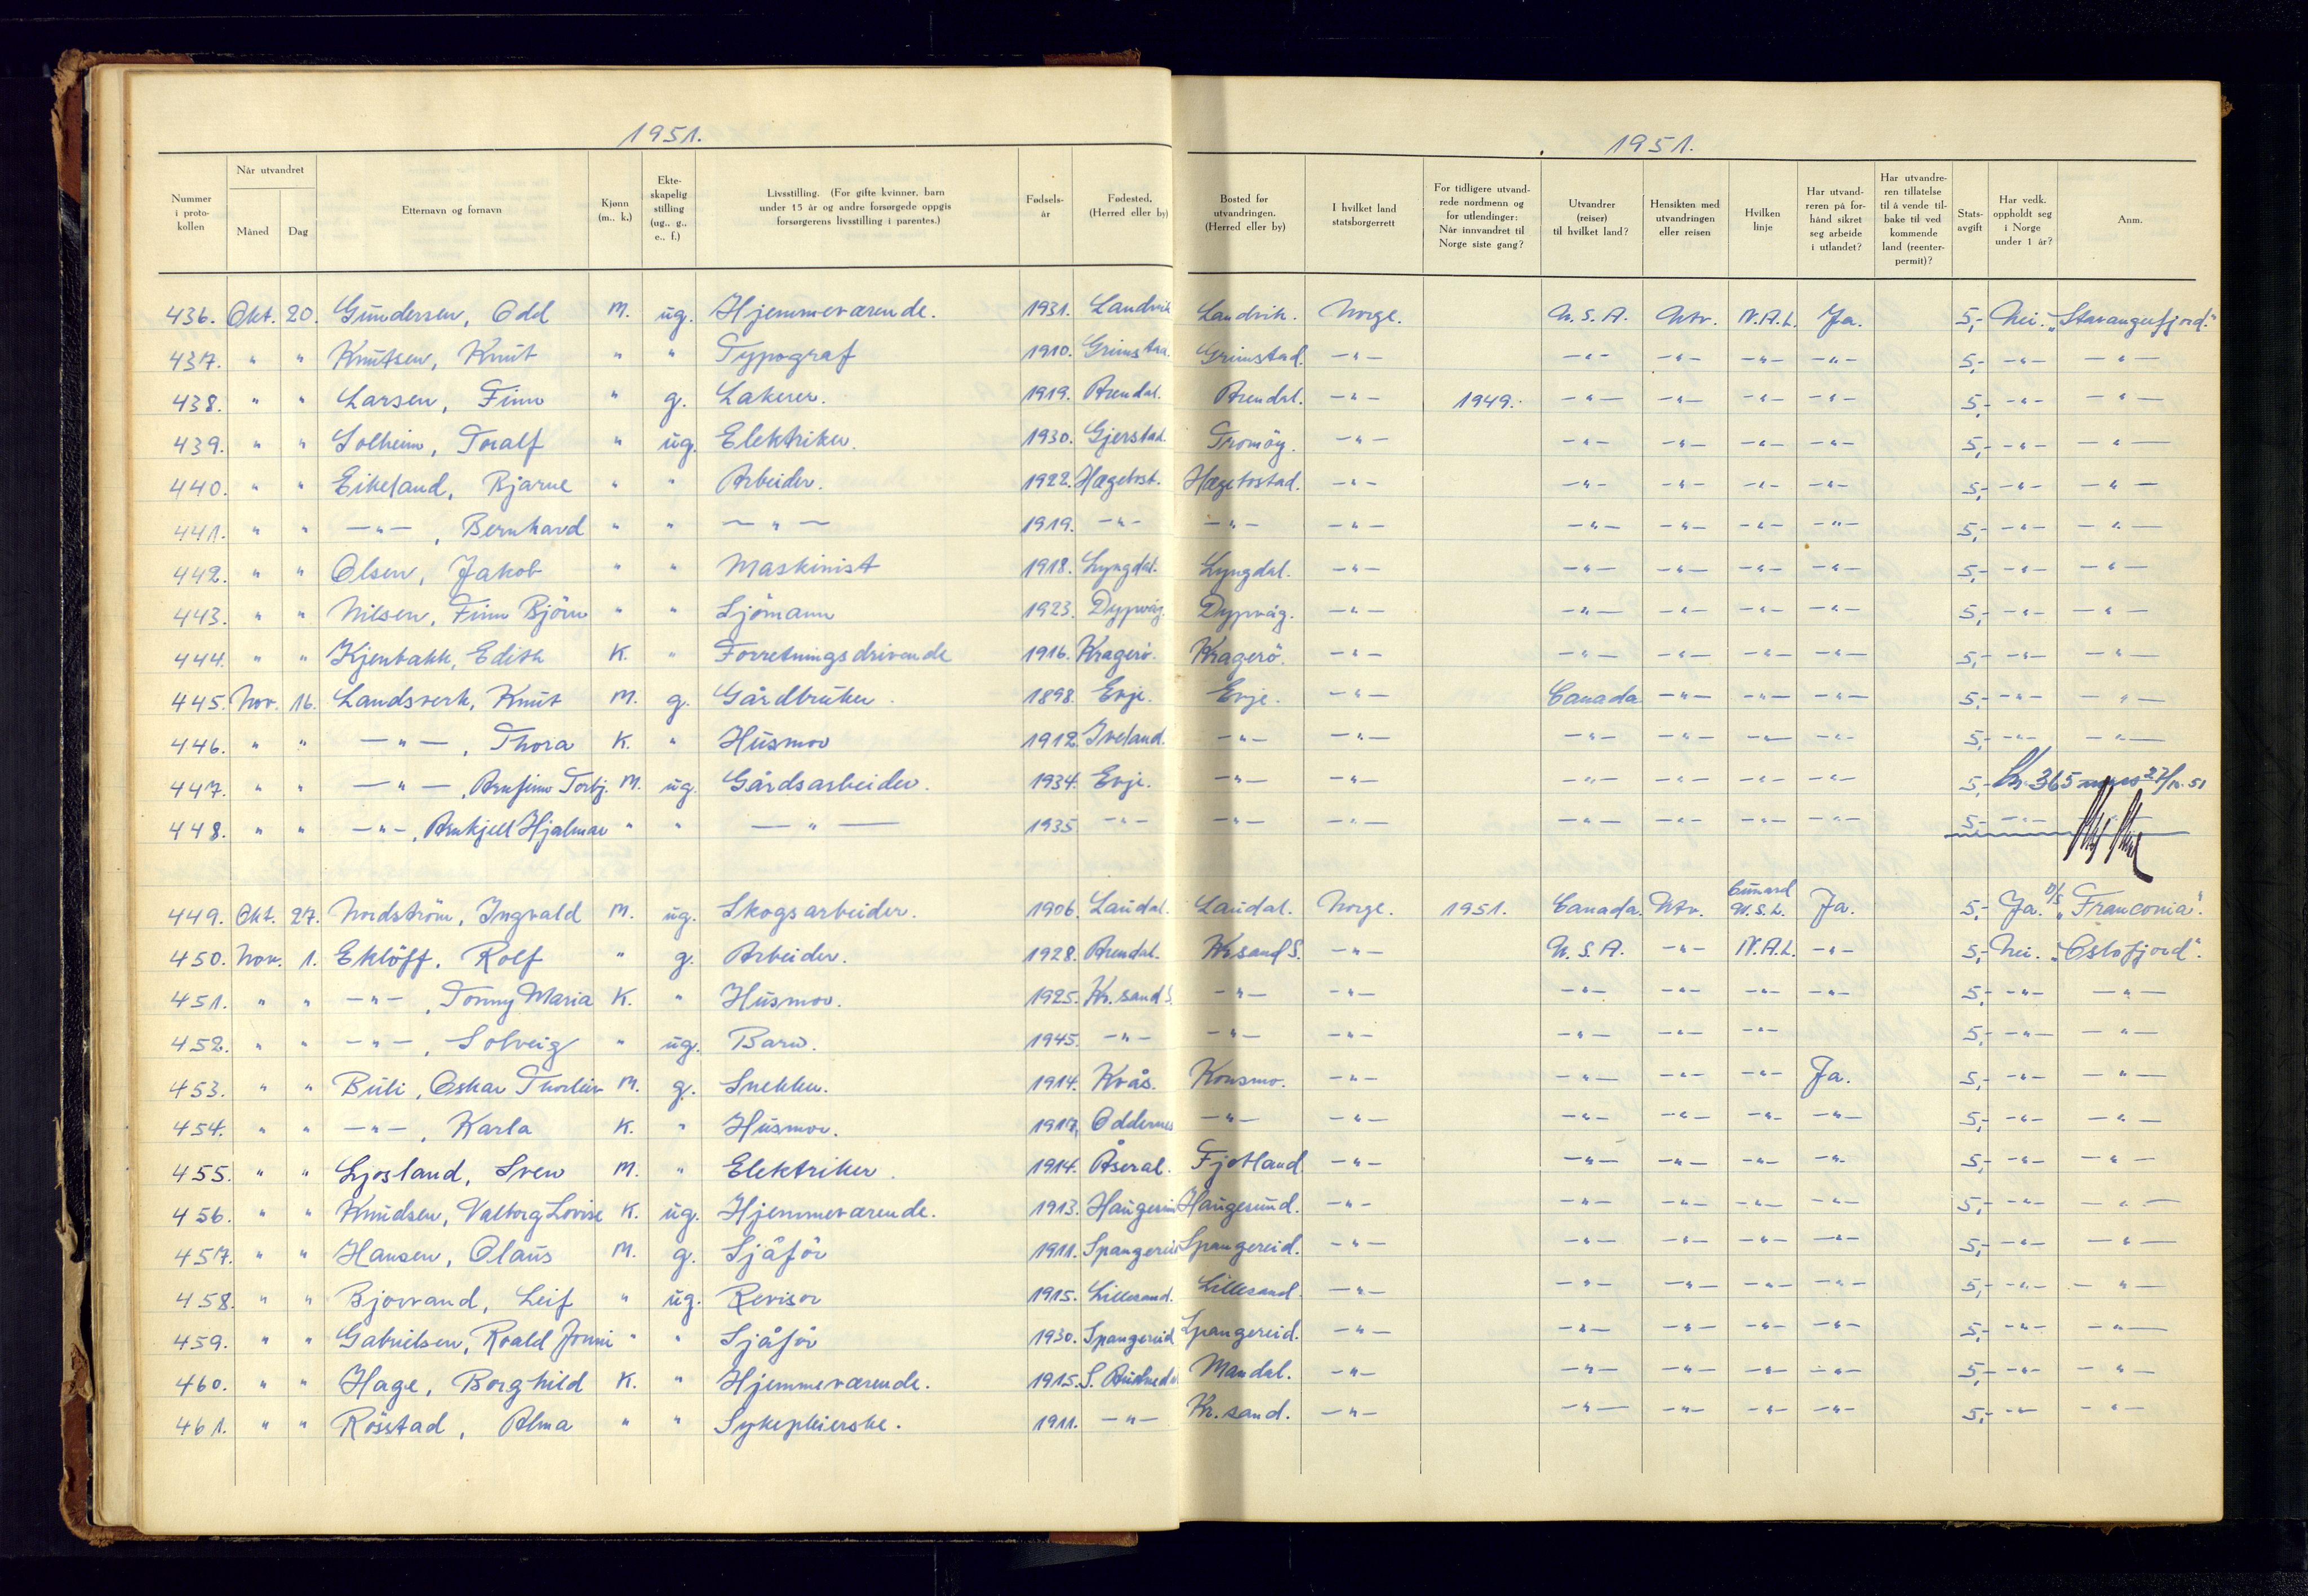 1951.
1951.
Nummer i proto- kollen | Når utvandret | Måned | Dag | Etternavn og fornavn | Kjønn (m.. k.) | Ekte- skapelig stilling (ug.. g.. e.. f.) | Livsstilling. (For gifte kvinner, barn under 15 år og andre forsørgede oppgis forsørgerens livsstilling i parentes.) | Fødsels- år | Fødested, (Herred eller by) | Bosted før utvandringen. (Herred eller by) | I hvilket land statsborgerrett | For tidligere utvand- rede nordmenn og for utlendinger: Når innvandret til Norge siste gang? | Utvandrer (reiser) til hvilket land? | Hensikten med utvandringen eller reisen | Hvilken linje | Har utvand- reren på for- hånd sikret seg arbeide i utlandet? | Har utvandre- ren tillatelse til å vende til- bake til ved kommende land (reenter- permit)? | Stats- avgift | Har vedk. oppholdt seg i Norge under 1 år? | Anm.
436. Okt. 20. Gundersen, Odd M. ug. Hjemmeværende. 1931. Landvik Landvik. Norge. U.S.A. Utv. N.A.L. Ja. 5,- Nei. "Stavangerfjord."
437. " " Knutsen, Knut " " Typograf 1910. Grimstad. Grimstad. -"- -"- -"- -"- -"- 5,- -"- -"-
438. " " Larsen, Finn " g. Lakerer. 1919. Arendal. Arendal. -"- 1949. -"- -"- -"- -"- 5,- -"- -"-
439. " " Solheim, Toralf " ug. Elektriker. 1930. Gjerstad. Tromöy. -"- -"- -"- -"- -"- 5,- -"- -"-
440. " " Eikeland, Bjarne " " Arbeider. 1922. Hægebost. Hægebostad. -"- -"- -"- -"- -"- 5,- -"- -"-
441. " " -"-, Bernhard " " -"- 1919. -"- -"- -"- -"- -"- -"- -"- 5,- -"- -"-
442. " " Olsen, Jakob " " Maskinist 1918. Lyngdal. Lyngdal. -"- -"- -"- -"- -"- 5,- -"- -"-
443. " " Nilsen, Finn Björn " " Sjömann 1923. Dypvåg. Dypvåg. -"- -"- -"- -"- -"- 5,- -"- -"-
444. " " Kjenbakk, Edith K. " Forretningsdrivende 1916. Kragerö. Kragerö. -"- -"- -"- -"- -"- 5,- -"- -"-
445. Nov. 16. Landsverk, Knut M. g. Gårdbruker. 1898. Evje. Evje. -"- Canada -"- -"- -"- 5,- -"- -"-
446. " " -"-, Thora K. " Husmor 1912. Iveland. -"- -"- -"- -"- -"- -"- 5,- -"- -"-
447. " " -"-, Arnfinn Torbj. M. ug. Gårdsarbeider. 1934. Evje. -"- -"- -"- -"- -"- -"- 5,- Kr. 365
448. " " -"-, Arnkjell Hjalmar " " -"- 1935 -"- -"- -"- -"- -"- -"- -"- 5,- -"-
449. Okt. 27. Nordström, Ingvald M. ug. Skogsarbeider. 1906. Laudal. Laudal. Norge. 1951. Canada. Utv. Cunard W.S.L. Ja. 5,- Ja. D/S "Franconia".
450. Nov. 1. Eklöff, Rolf " g. Arbeider. 1928. Arendal. Kr.sand S. -"- U.S.A. -"- N.A.L. -"- 5,- Nei. "Oslofjord".
451. " " -"-, Tonny Maria K. " Husmor. 1925. Kr.sand S. -"- -"- -"- -"- -"- -"- 5,- -"- -"-
452. " " -"-, Solveig " ug. Barn. 1945. -"- -"- -"- -"- -"- -"- 5,- -"- -"-
453. " " Buli, Oskar Thorleiv M. g. Snekker. 1914. Kvås. Konsmo. -"- -"- -"- -"- Ja. 5,- -"- -"-
454. " " -"-, Karla K. " Husmor. 1917. Oddernes -"- -"- -"- -"- -"- -"- 5,- -"- -"-
455. " " Ljosland, Sven M. " Elektriker. 1914. Åseral. Fjotland -"- -"- -"- -"- -"- 5,- -"- -"-
456. " " Knudsen, Valborg Lovise K. ug. Hjemmeværende. 1913. Haugesund Haugesund. -"- -"- -"- -"- -"- 5,- -"- -"-
457. " " Hansen, Olaus M. g. Sjåför 1911. Spangereid Spangereid. -"- -"- -"- -"- -"- 5,- -"- -"-
458. " " Bjorvand, Leif " ug. Revisor 1915. Lillesand. Lillesand. -"- -"- -"- -"- -"- 5,- -"- -"-
459. " " Gabrielsen, Roald Jonni " " Sjåför 1930. Spangereid Spangereid. -"- -"- -"- -"- -"- 5,- -"- -"-
460. " " Hage, Borghild K. " Hjemmeværende. 1915. S. Audnedal Mandal. -"- -"- -"- -"- -"- 5,- -"- -"-
461. " " Rösstad, Alma " " Sykepleierske. 1911. -"- Kr.sand. -"- -"- -"- -"- -"- 5,- -"- -"-